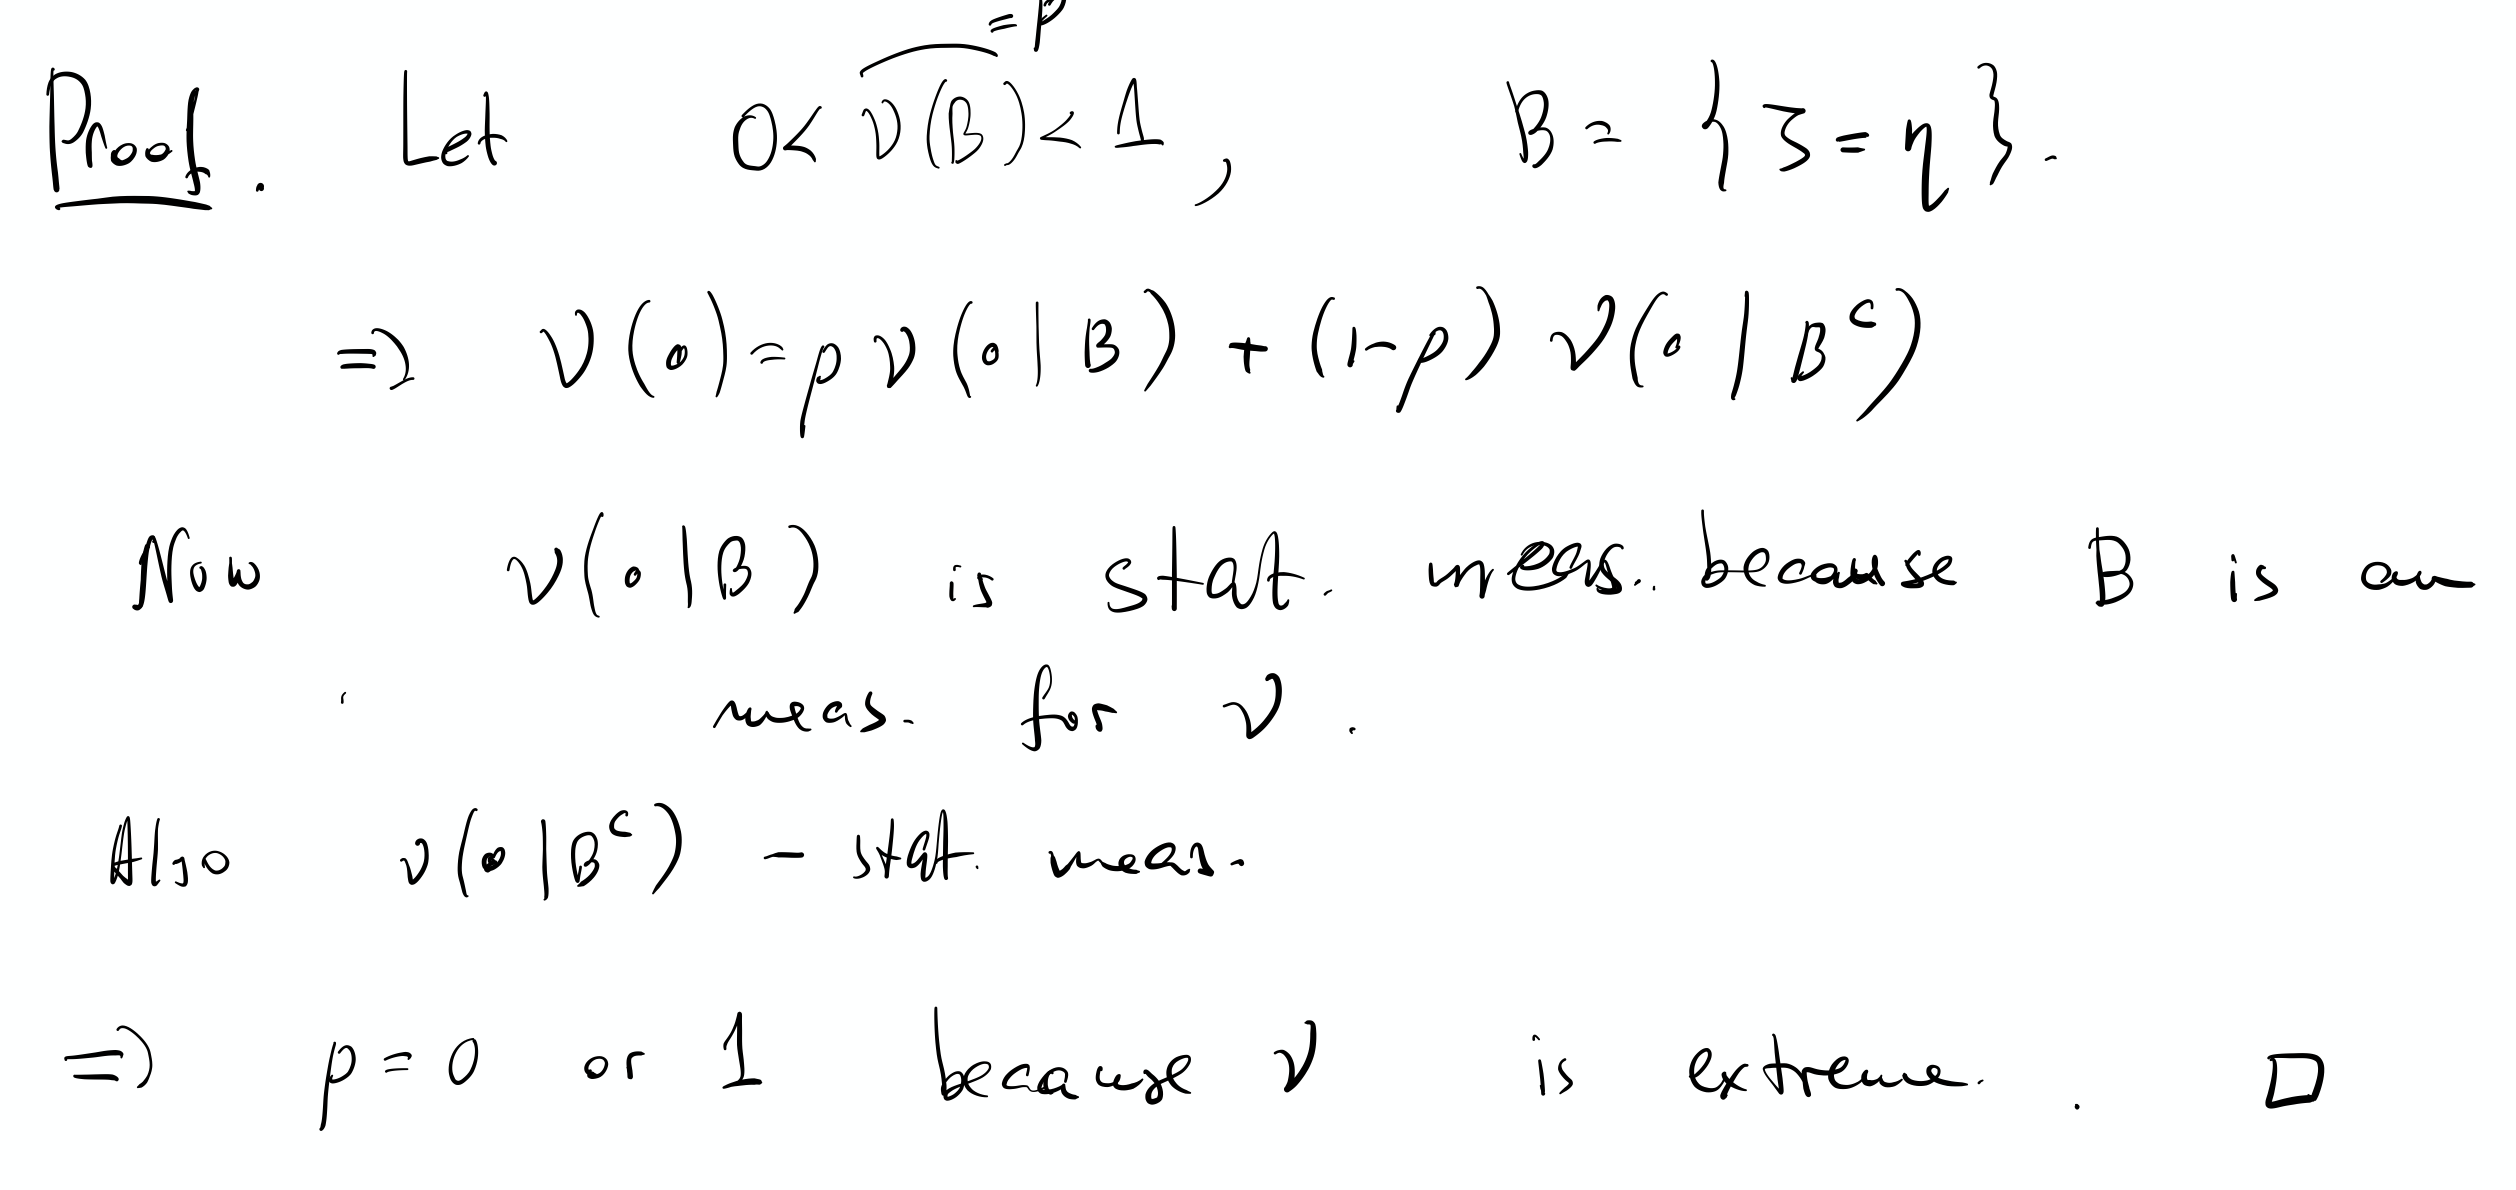 = p
Proof. Let 0 < ν(B) < 1, B = { ξ = η }.
⇒ ν(·) = p ν(· | B) + (1-p) ν(· | B^c).
Now ν(· | B) is stat. meas. because B is an
inv. meas. for ν.
Also ν(· | B^c) - stat. meas.
⇒ p = 0 or 1 because ν is extreme. □